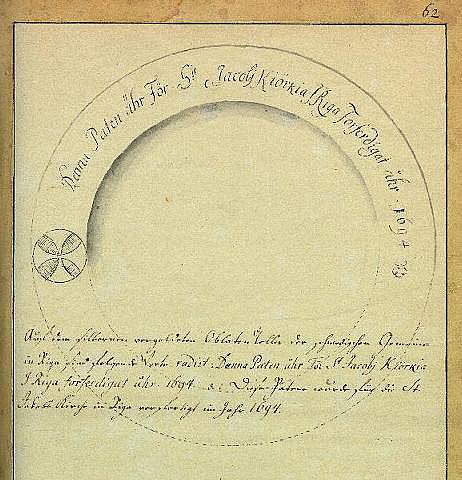 62
Denna Paten ähr För St. Jacobj Kiörkia J Riga forferdigat ähr 1694
Aus dem silbernen vergoldeten Oblaten Teller der schwedischen Gemeine
in Riga sind folgende Worte radirt Denna Paten ähr För St Jacobj Kiörkia
J Riga forferdigat ähr 1694. d. i. Diese Patene wurde für die St.
Jakobs Kirche in Riga verfertigt im Jahr 1694.